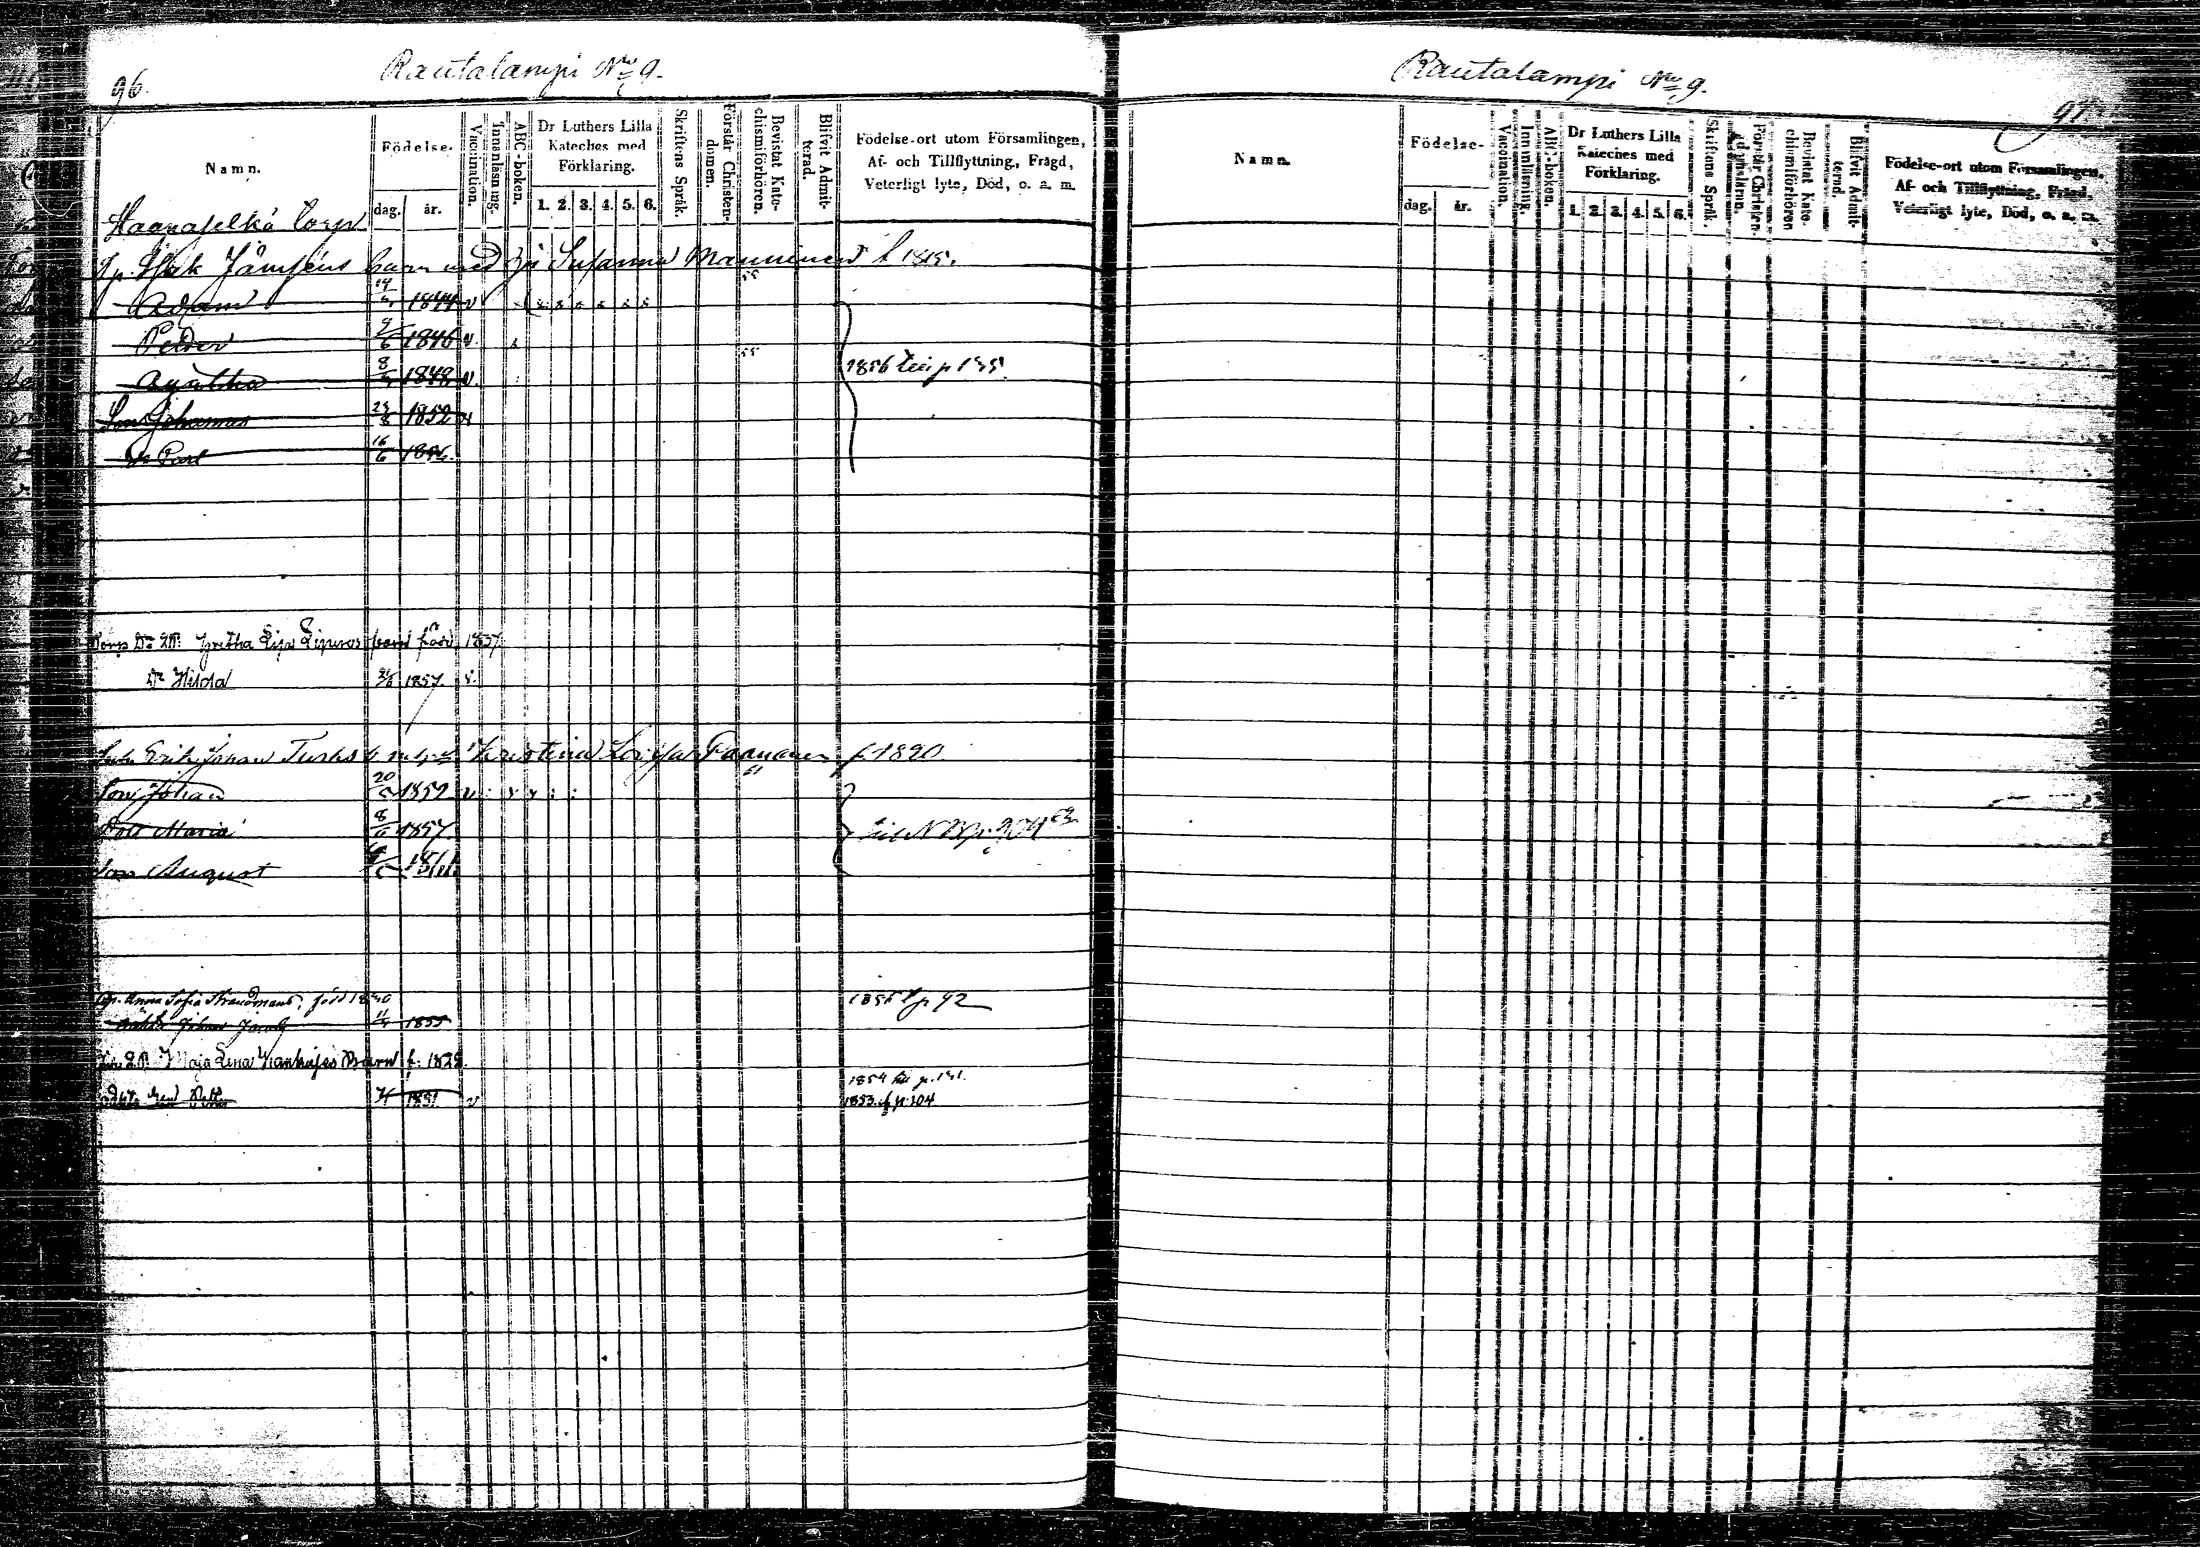 96.
Rautalampi No 9.
Namn.
Födelse.
dag. år.
Vaccination.
Innanläsning.
ABC-boken.
Dr Luthers Lilla Kateches med Förklaring.
1. 2. 3. 4. 5. 6.
Skriftens Språk.
Förstår Christendomen.
Bevistat Katechismiförhören.
Blifvit Admitterad.
Födelse-ort utom Församlingen,
Af- och Tillflyttning, Frägd,
Veterligt lyte, Död, o. a. m.
Haanaselkä torp
Isak Jämsens barn med Susanna Manninen f 1815.
Adam 1844 v
Petter 9/6 1846 v
Agatha 8 1848 v
Son Johannes 1852 v
Paul 16/6 1856.
1856 till p 135.
Gretha Lisa barn född 1837
Dr Hilda 1857. v.
Erik Johan Turks Kristina Lovisa Faananen f. 1820.
Son Johan 20 1852 v
Dott Maria 8 1857.
Son August
Anna Sofia Strandmans, född 1830
Johan Jacob 11 1855
1856 p 92
Maja Lena Barn f. 1828.
Petter 1851. v
1854 till p. 131.
1853 p 104
Rautalampi No 9.
97
Namn.
Födelse-
dag. år.
Vaccination.
Innanläsning.
ABC-boken.
Dr Luthers Lilla Kateches med Förklaring.
1. 2. 3. 4. 5. 6.
Skriftens Språk.
Förstår Christendomen.
Bevistat Katechismiförhören
Blifvit Admitterad.
Födelse-ort utom Församlingen,
Af- och Tillflyttning, Frägd,
Veterligt lyte, Död, o. a. m.